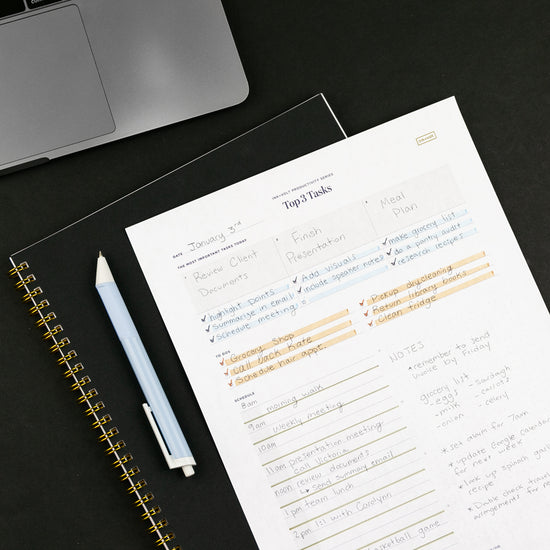 INKWELL PRODUCTIVITY SERIES
Top 3 Tasks
DATE January 3rd
THE MOST IMPORTANT TASKS TODAY
Review Client
Documents
Finish
Presentation
Meal
Plan
highlight points
Summarize in email
Schedule meeting
Add visuals
include speaker notes
make grocery list
do a pantry audit
research recipes
TO DOS
Grocery Shop
Call back Kate
Schedule hair appt.
Pickup drycleaning
Return library books
Clean fridge
SCHEDULE
8am morning walk
9am weekly meeting
10am
11am presentation meeting
call Victoria
noon review documents
↳ send summary email
1pm team lunch
2pm 1:1 with Carolynn
basketball game
NOTES
* remember to send
invoice by Friday
grocery list
- eggs - sourdough
- milk - carrots
- onion - celery
* set alarm for 7am
* update Google calendar
for next week
* look up spinach
recipe
* Double check
for